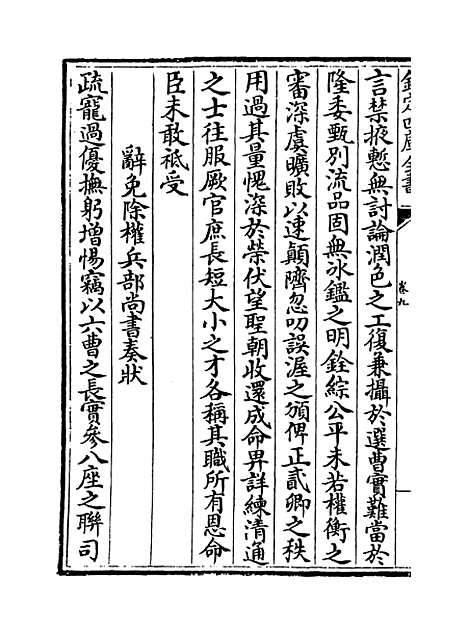 欽定四庫全書
卷九
言禁掖慙無討論潤色之工復兼攝於選曹實難當於
隆委甄別流品固無冰鑑之明銓綜公平未若權衡之
審深虞曠敗以速顛隮忽叨誤渥之頒俾正貳卿之秩
用過其量愧深於榮伏望聖朝收還成命畀詳練清通
之士往服厥官庶長短大小之才各稱其職所有恩命
臣未敢祗受
辭免除權兵部尚書奏狀
疏寵過優撫躬增惕竊以六曹之長實參八座之聯司